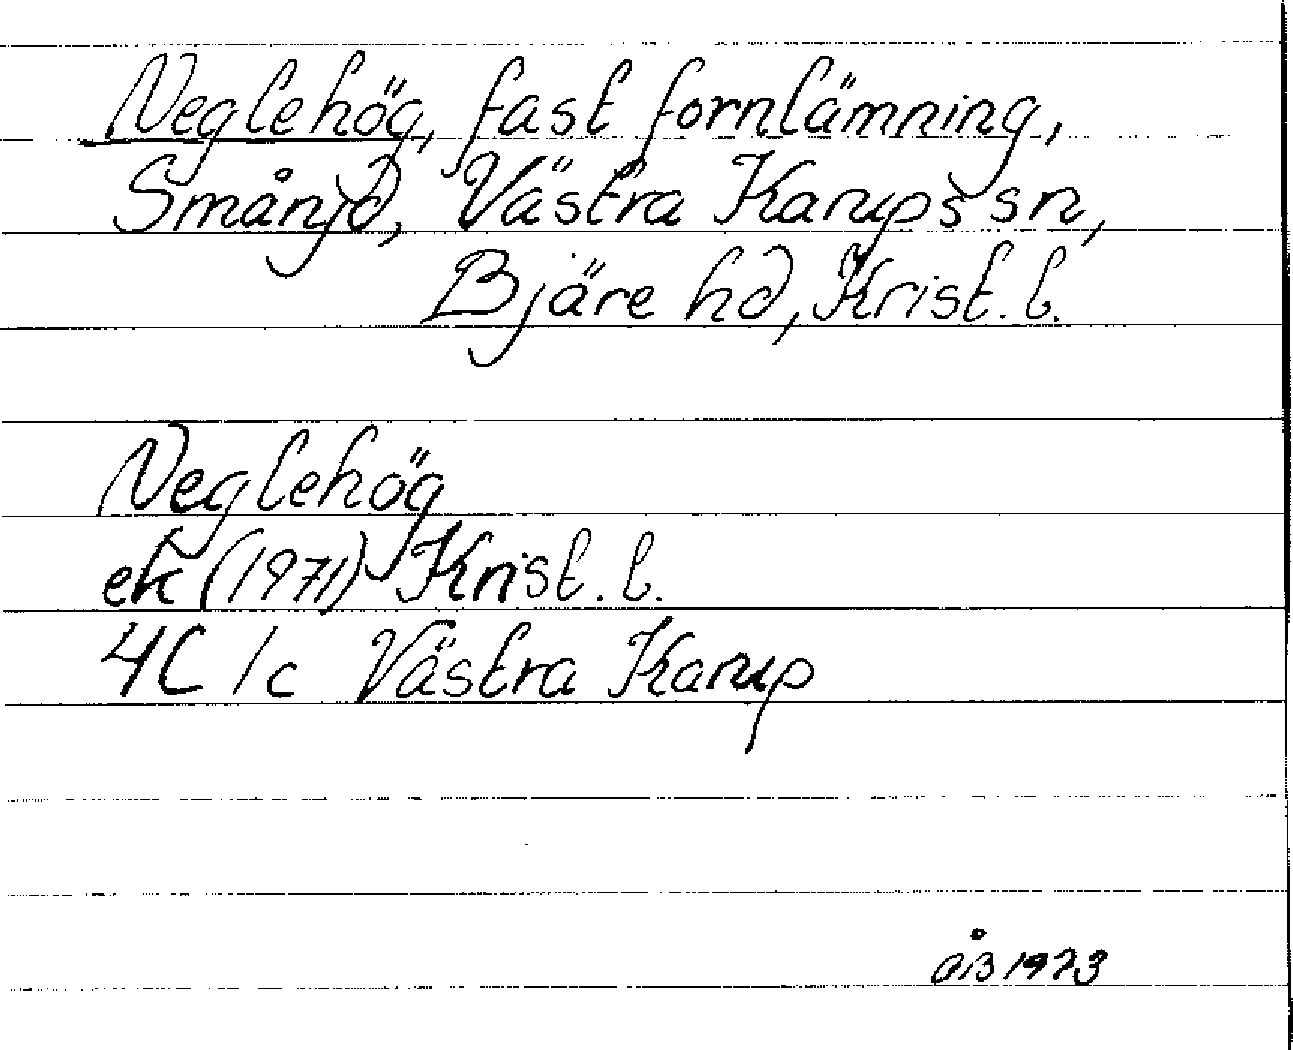 Neglehög, fast fornlämning,
Smånjd, Västra Karups sn,
Bjäre hd, Krist. l.
Neglehög
ek (1971) Krist. l.
4C 1c Västra Karup
ÅB 1973